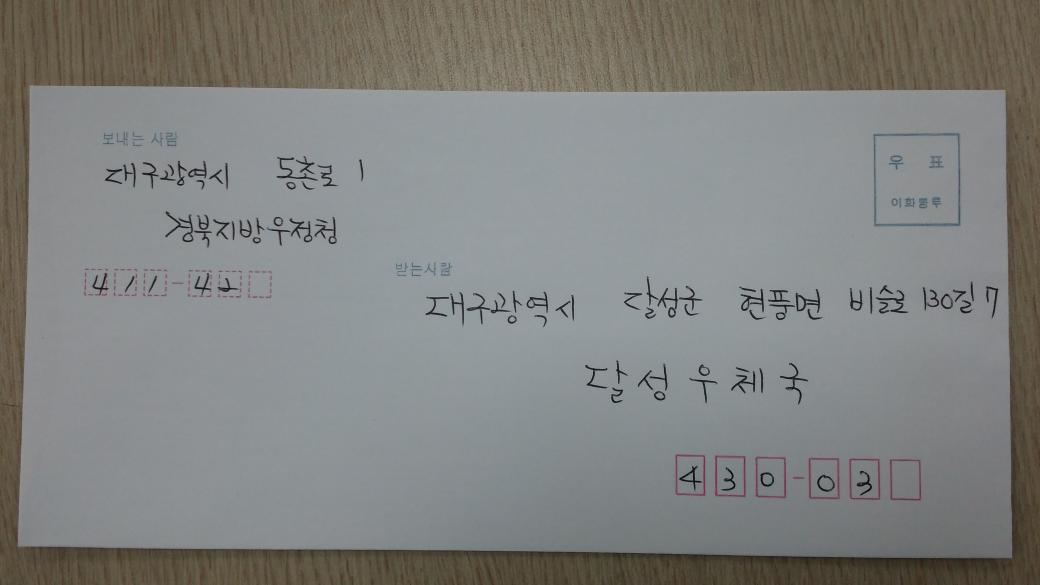 보내는 사람
대구광역시 동촌로 1
경북지방우정청
411-42
우 표
이화봉투
받는사람
대구광역시 달성군 현풍면 비슬로 130길 7
달성우체국
430-03